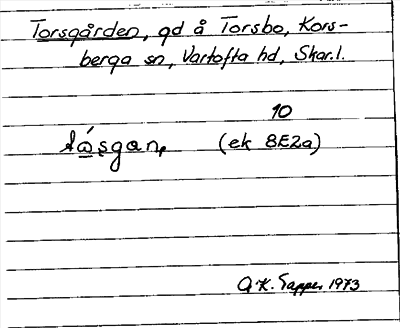 Torsgården, gd å Torsbo, Kors-
berga sn, Vartofta hd, Skar.l.
10
(ek 8E2a)
K. Tapper 1973